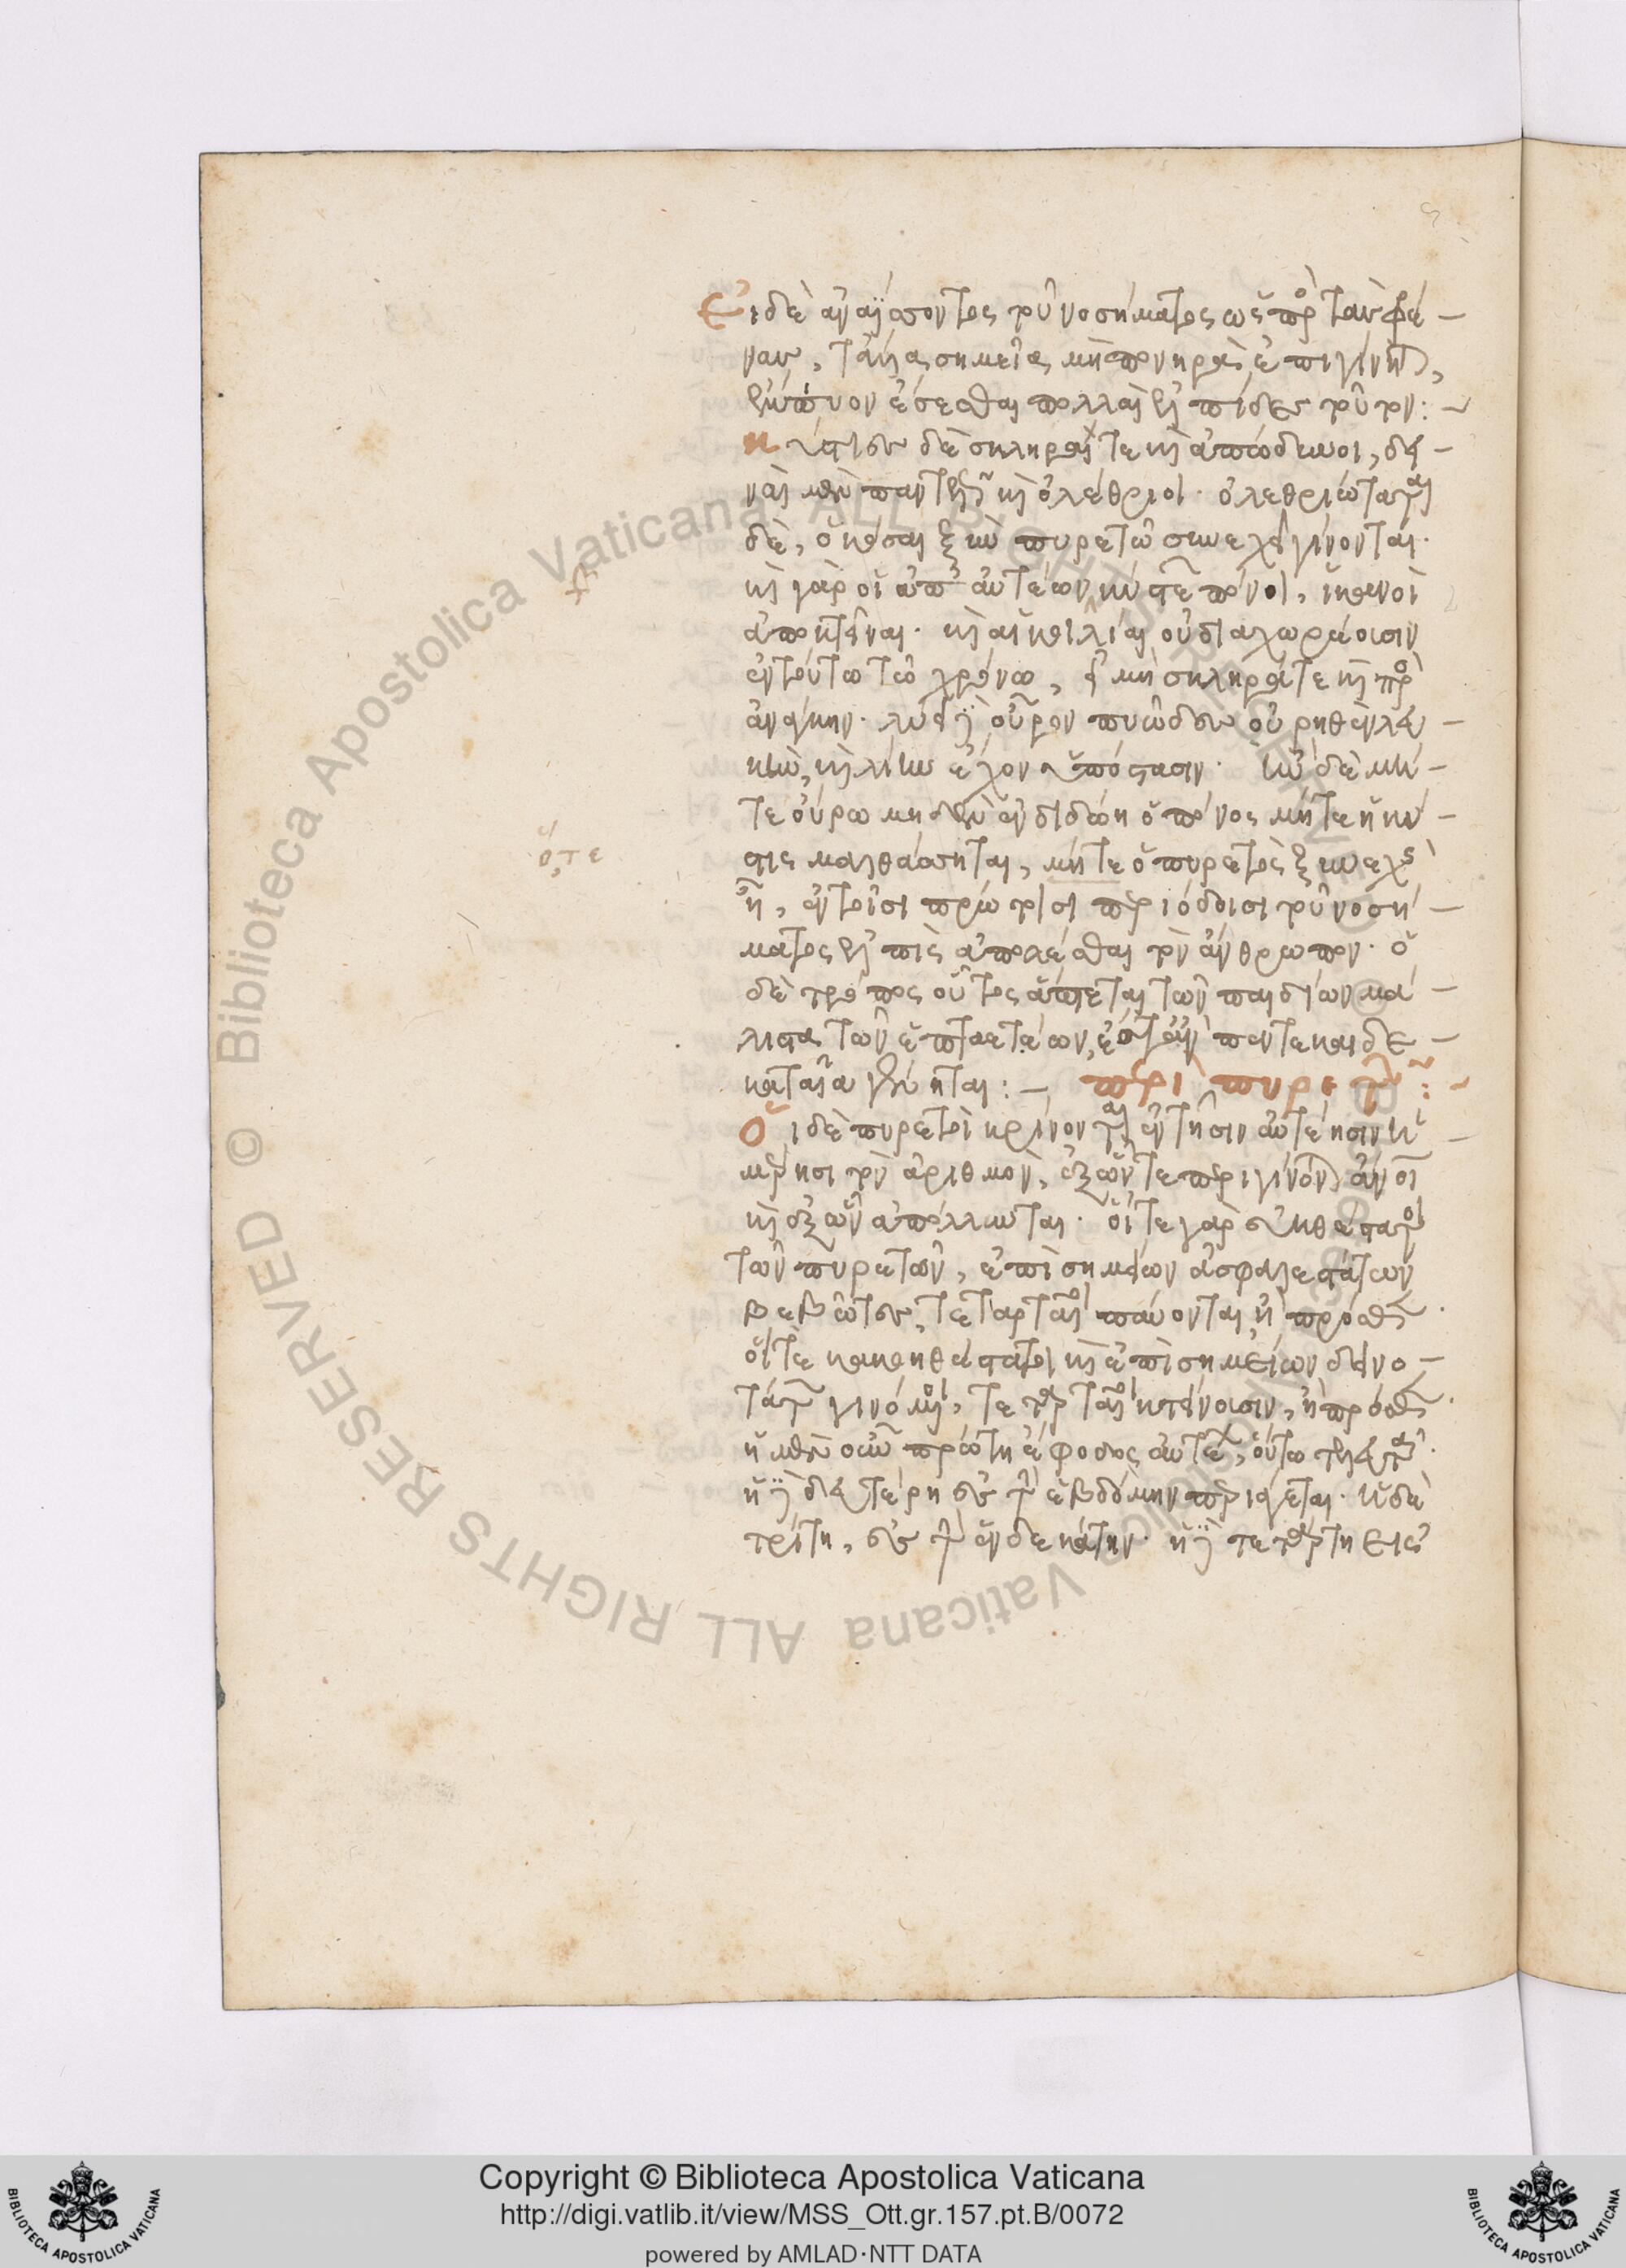 Εἰ δὲ ἀναΐσσοντος τοῦ νοσήματος ὡς πρὸς τὰς φρέ –
νας, τἆλλα σημεῖα μὴ πονηρὰ ἐπιγίνηται,
ἔμπυον ἔσεσθαι πολλαὶ ἐλπίδες τοῦτον: ~
κύστιες δὲ σκληραί τε καὶ ἐπώδυνοι, δει –
ναὶ μὲν παντελῶς καὶ ὀλέθριοι· ὀλεθριώταται
δὲ, ὁκόσαι ξὺν πυρετῶ συνεχεῖ γίνονται·
καὶ γὰρ οἱ ἀπ' αὐτέων κύστεων πόνοι, ἱκανοὶ
ἀποκτεῖναι· καὶ αἱ κοιλίαι οὐ διαχωρέουσιν
ἐν τούτω τῶ χρόνω, εἰ μὴ σκληρά τε καὶ πρὸς
ἀνάγκην· λύει δὲ οὖρον πυῶδες οὐρηθὲν λευ –
κὴν, καὶ λείην ἔχον ὑπόστασιν· ἢν δὲ μή –
τε οὖρω μηδὲν ἐνδιδώη ὁ πόνος μήτε ἡ κύ –
στις μαλθάσσηται, μήτε ὁ πυρετὸς ξυνεχὴς
ὅτε
ἦ, ἐν τοῖσι πρώτοισι περιόδοισι τοῦ νοσή –
ματος ἐλπὶς ἀπολέσθαι τὸν ἄνθρωπον· ὁ
δὲ τρόπος οὗτος ἅπτεται τῶν παιδίων μά –
λιστα τῶν ἑπταετέων, ἔστ' ἂν πεντεκαιδε –
καταῖα γένηται: – περὶ πυρετῶν: ~
Οἱ δὲ πυρετοὶ κρίνονται ἐν τῆσιν αὐτέησιν ἡ –
μέρησι τὸν ἀριθμὸν, ἐξ ὧν τε περιγίνονται ἄνθρωποι
καὶ ἐξ ὧν ἀπόλλυνται· οἵ τε γὰρ εὐηθέστατοι
τῶν πυρετῶν, ἐπὶ σημείων ἀσφαλεστάτων
βεβῶτες, τεταρταῖοι παύονται, ἢ πρόσθεν·
οἵ τε κακοηθέστατοι καὶ ἐπὶ σημείων δεινο –
τάτων γινόμενοι, τεταρταῖοι κτείνουσιν, ἢ πρόσθεν·
ἡ μὲν οὖν πρώτη ἔφοδος αὐτέων, οὕτω τελευτᾶ·
ἡ δὲ δευτέρη ἐς τὴν ἑβδόμην περιάγεται· ἡ δὲ
τρίτη, ἐς τὴν ἑνδεκάτην· ἡ δὲ τετάρτη εἰς
Copyright © Biblioteca Apostolica Vaticana
http://digi.vatlib.it/view/MSS_Ott.gr.157.pt.B/0072
powered by AMLAD·NTT DATA
BIBLIOTECA APOSTOLICA VATICANA
BIBLIOTECA APOSTOLICA VATICANA
© Biblioteca Apostolica Vaticana ALL RIGHTS RESERVED